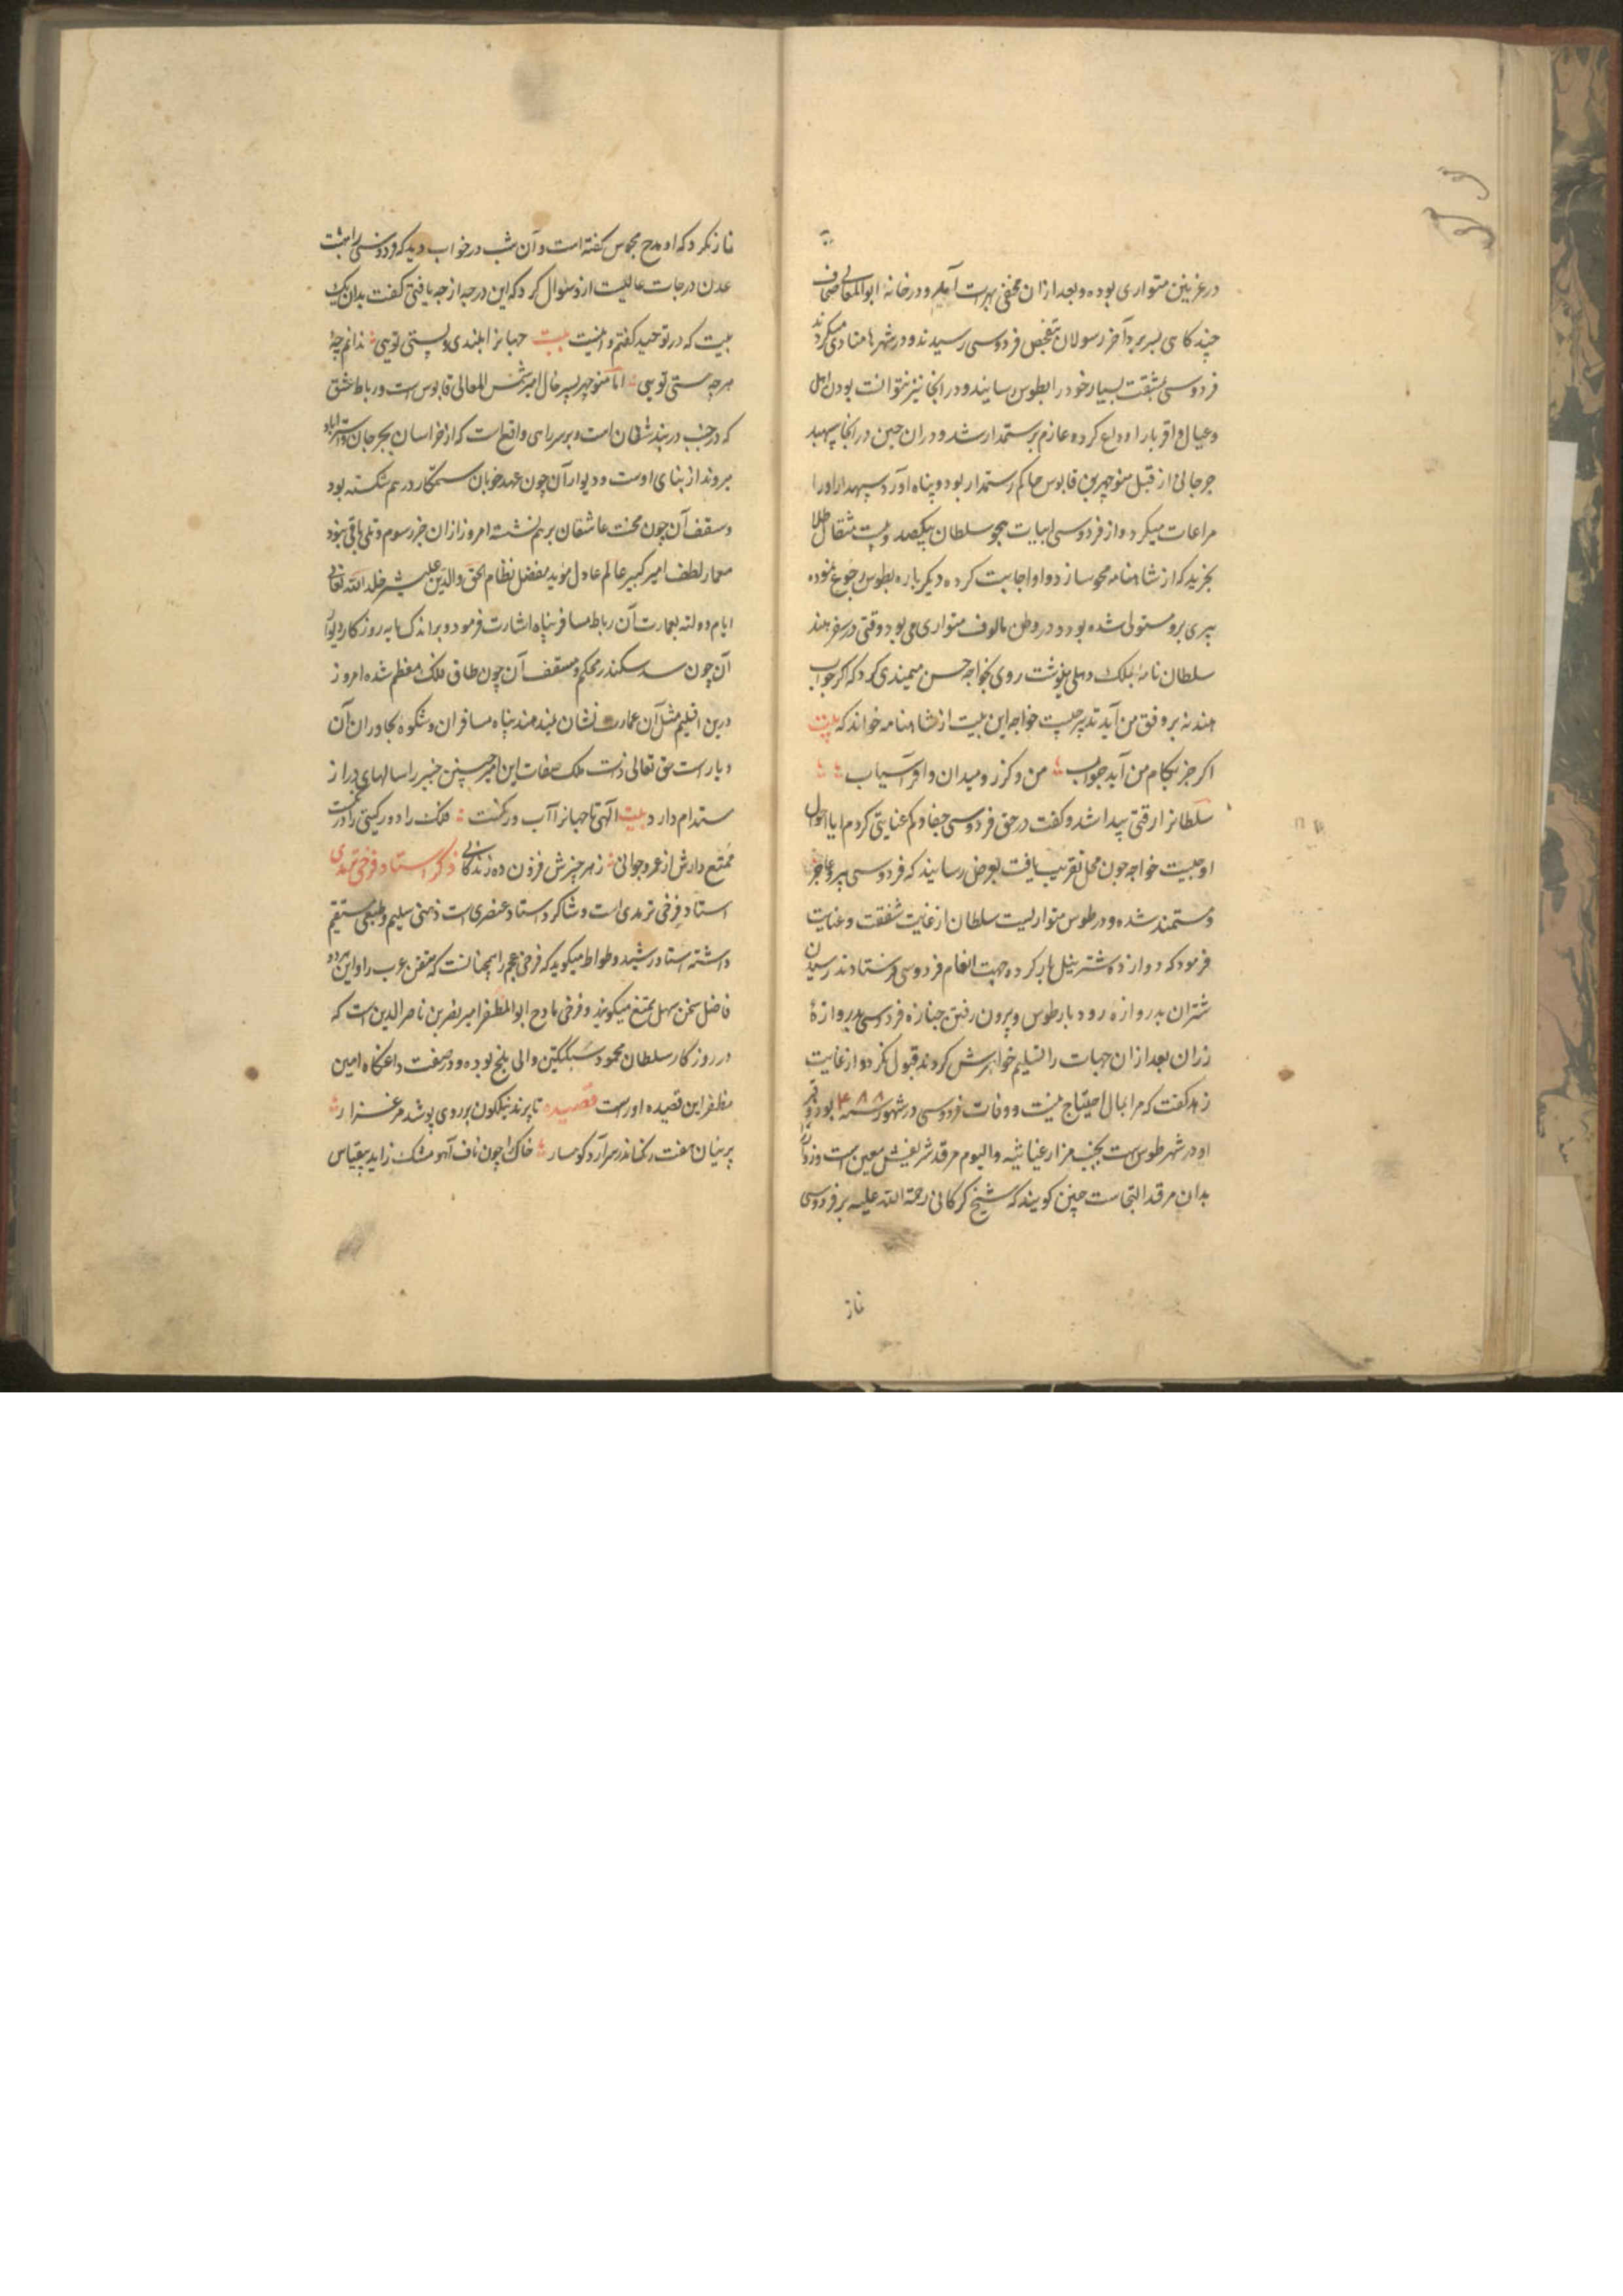 در غزنین متواری بوده و بعد ازان مخفی بهرات آمد و در خانهٔ ابوالمعالی صحاف
چند کاسی بسر برد آخر رسولان بتفحص فردوسی رسیدند و در شهرها منادی میکردند
فردوسی بمشقت بسیار خود را بطوس رسانید و در انجا نیز نتوانست بودن اهل
و عیال و اقربا را وداع کرده عازم رستمدار شد و دران حین در انجا سپهبد
جرجانی از قبل منوچهر بن قابوس حاکم رستمدار بود و پناه آورد سپهدار اورا
مراعات میکرد و از فردوسی ابیات هجو سلطان بیکصد و بیست مثقال طلا
بخرید که از شاهنامه محو سازد و او اجابت کرده دیگرباره بطوس رجوع نموده
پیری برو مستولی شده بود و در وطن مالوف متواری می بود وقتی در سفر هند
سلطان نامه بملک دهلی بنوشت روی بخواجه حسن میمندی کرد که اکر جواب
هند نه بر وفق من آید تدبیر چیست خواجه این بیت از شاهنامه خواند که بیت
اکر جز بکام من آید جواب من و کرز و میدان و افراسیاب
سلطانرا رقتی پیدا شد و کفت در حق فردوسی جفا و کم عنایتی کردم ایا احوال
او چیست خواجه چون محل تقریب یافت بعرض رسانید که فردوسی پیر و عاجز
و مستمند شده و در طوس متواریست سلطان از غایت شفقت و عنایت
فرمود که دوازده شتر نیل بار کرده جهت انعام فردوسی فرستادند رسیدن
شتران بدروازه رودبار طوس و بیرون رفتن جنازه فردوسی بدروازهٔ
رزان بعد ازان جهات را تسلیم خواهرش کردند قبول نکرد و از غایت
زهد کفت که مرا بمال احتیاج نیست و وفات فردوسی در شهور سنه بود و قبر
او در شهر طوس است بجنب مزار عباسیه و الیوم مرقد شریفش معین است و زوار
بدان مرقد التجاست چنین کویند که شیخ کرکانی رحمة الله علیه بر فردوسی
نماز
نماز نکرد که او مدح مجوس کفته است و آن شب در خواب دید که فردوسی را بهشت
عدن درجات عالیست ازو سئوال کرد که این درجه از چه یافتی کفت بدان یک
بیت که در توحید کفتم و اینست بیت جهانرا بلندی و پستی تویی ندانم چهٔ
هرچه هستی تویی اما منوچهر پسر خال امیر شمس المعالی قابوس است و رباط عشق
که در جنب دربند شقان است و بر سر راهی واقع است که از خراسان بجرجان و استراباد
میروند از بنای اوست و دیوار آن چون عهد خوبان ستمکار درهم شکسته بود
و سقف آن چون محنت عاشقان برهم نشسته امروز ازان جز رسوم و تلی باقی نبود
معمار لطف امیر کبیر عالم عادل موید مفضل نظام الحق والدین علیشیر خلد الله تعالی
ایام دولته بعمارت آن رباط مسافر پناه اشارت فرمود و براندک مایه روزکار دیوار
آن چون سد سکندر محکم و سقف آن چون طاق فلک معظم شده امروز
درین اقلیم مثل آن عمارت نشان نمیدهند پناه مسافران و شکوه مجاوران آن
دیار است حق تعالی ذات ملک صفات این امیر چنین خیر را سالهای دراز
مستدام دارد بیت الهی تا جهانرا آب و رنکست فلک را دور کیتی را درنکست
ممتع دارش از عمر و جوانی زهر چیزش فزون ده زندکانی ذکر استاد فرخی ترمدی
استاد فرخی ترمدی است و شاکرد استاد عنصری است ذهنی سلیم و طبعی مستقیم
داشته استاد رشید وطواط میکوید که فرخی عجم را همچنانست که متنبی عرب را و این هردو
فاضل سخن سهل ممتنع میکویند و فرخی مادح ابوالمظفر امیر نصر بن ناصرالدین است که
در روزکار سلطان محمود سبکتکین والی بلخ بوده و در صفت داغکاه امین
مظفر این قصیده اوراست قصیده تا پرند نیلکون بر روی پوشد مرغزار
پرنیان هفت رنک اندر سر آرد کوهسار خاک را چون ناف آهو مشک زاید بیقیاس